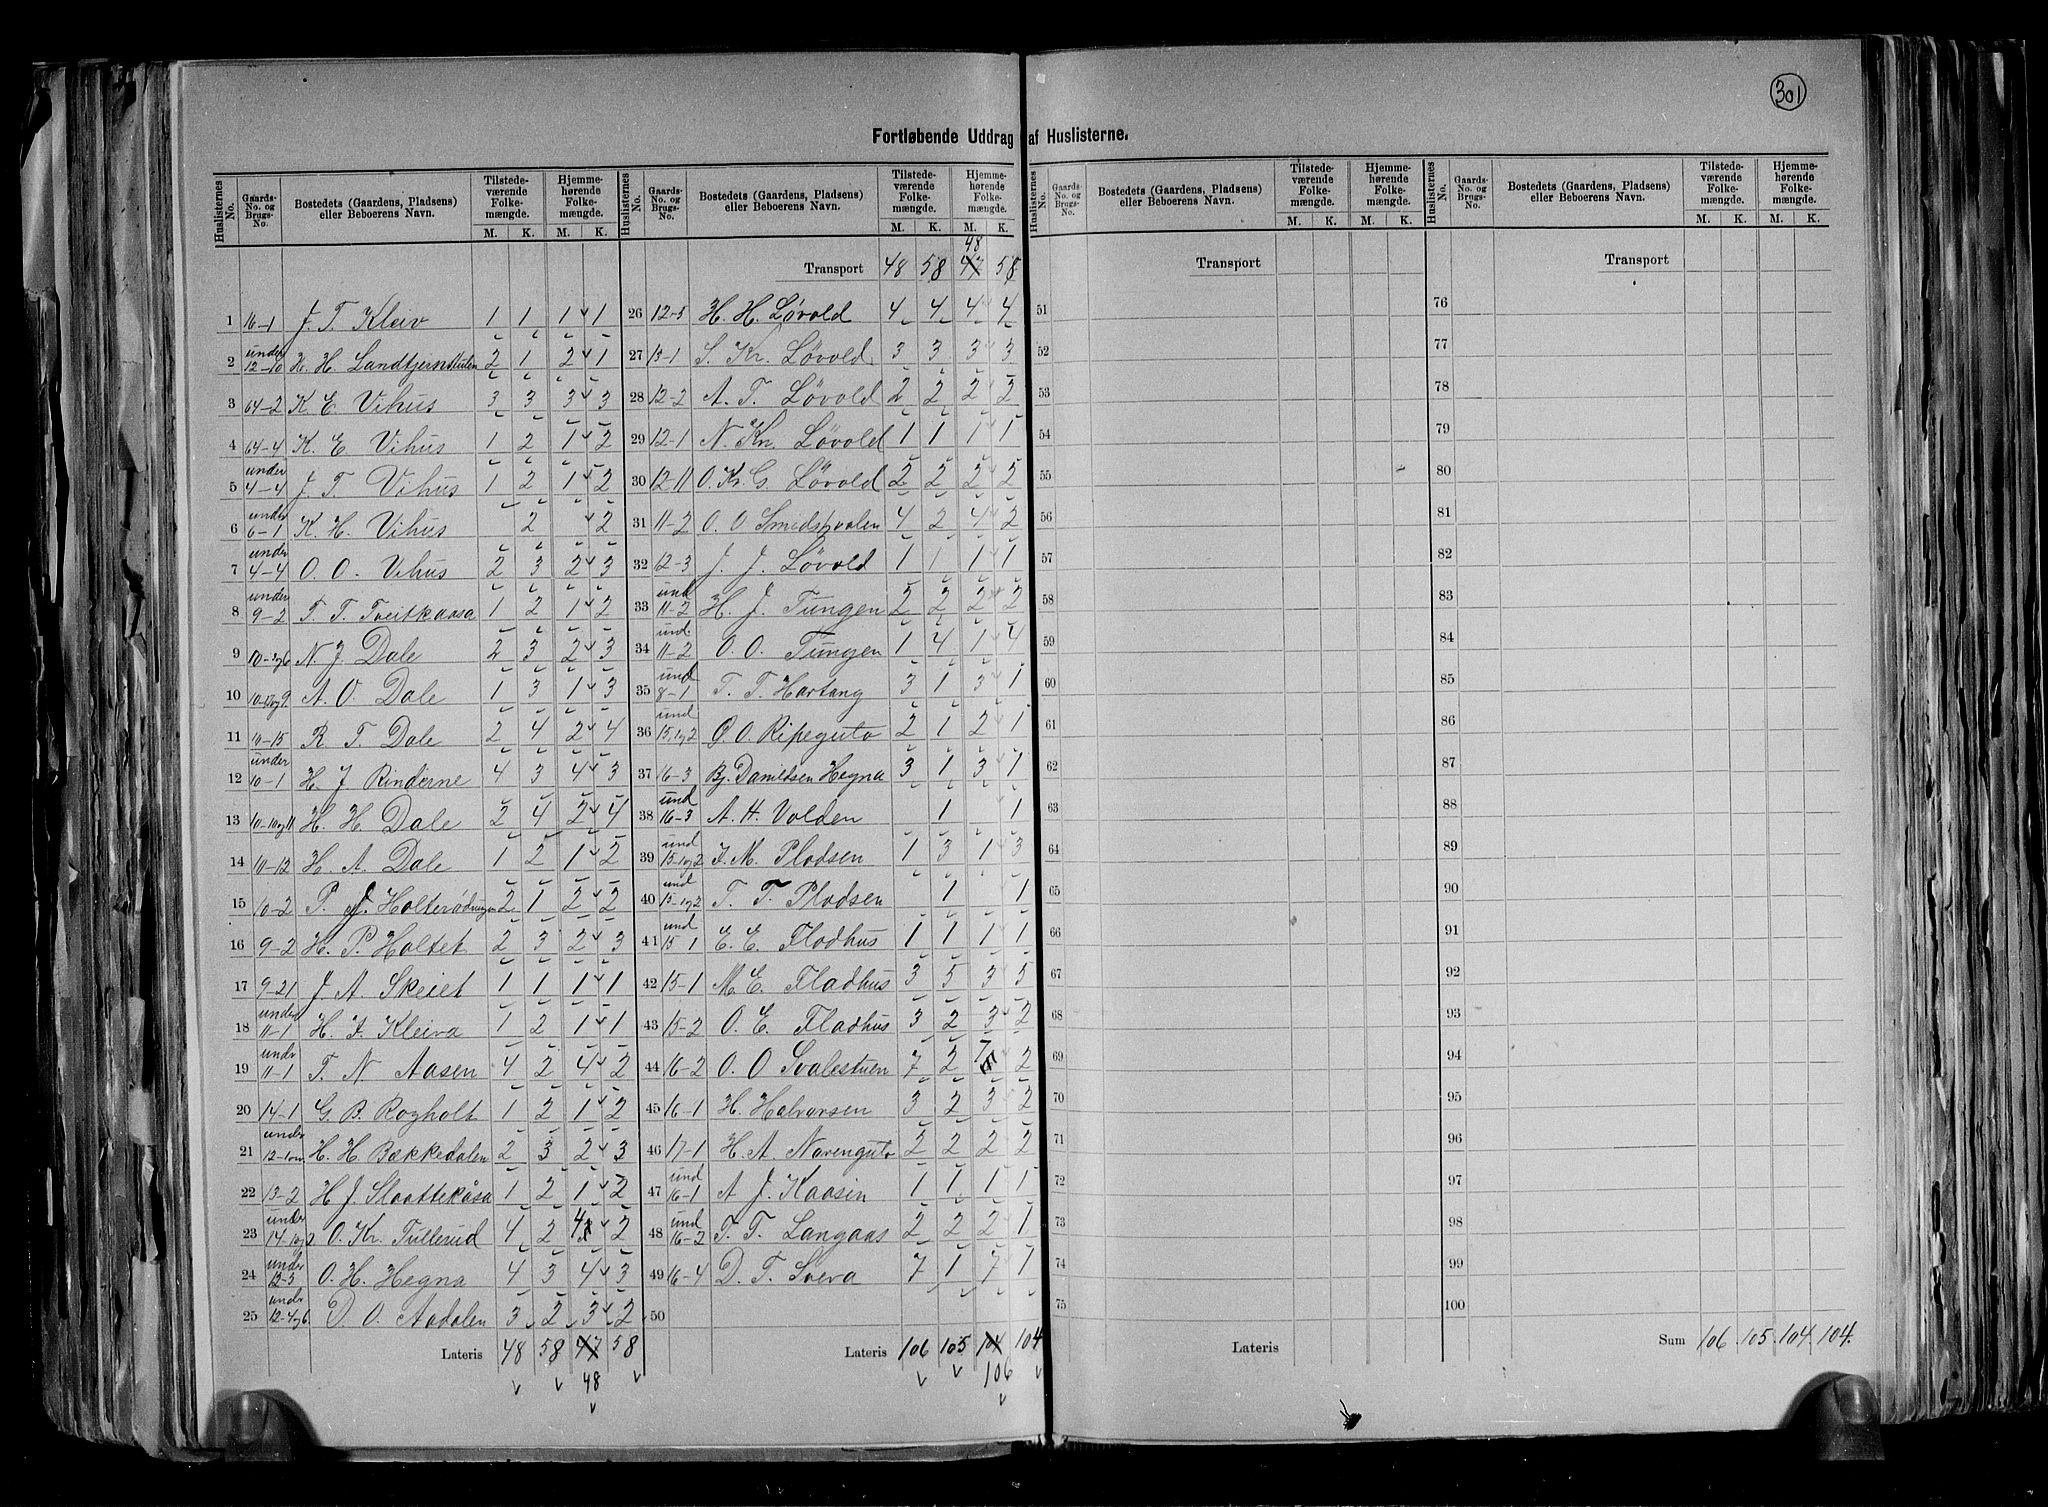 301
Fortløbende Uddrag af Huslisterne.
Huslisternes No. Gaards-No. og Brugs-No. Bostedets (Gaardens, Pladsens) eller Beboerens Navn. Tilstedeværende Folkemængde. M. K. Hjemmehørende Folkemængde. M. K.
1 16-1 J. T. Kleiv 1 1 1 1
2 under 12-10 H. H. Landtjernstulen 2 1 2 1
3 64-2 K. E. Vihus 3 3 3 3
4 64-4 K. E. Vihus 1 2 1 2
5 under 4-4 J. T. Vihus 1 2 1 2
6 under 6-1 K. H. Vihus 2 2
7 under 4-4 O. O. Vihus 2 3 2 3
8 under 9-2 T. T. Tveitkaasa 1 2 1 2
9 N. J. Dale 2 3 2 3
10 A. O. Dale 1 3 1 3
11 10-15 R. T. Dale 2 4 2 4
12 under 10-1 H. J. Rinderne 4 3 4 3
13 10-10og11 H. H. Dale 2 4 2 4
14 10-12 H. A. Dale 1 2 1 2
15 10-2 P. J. 2 1 2 2
16 9-2 H. P. Holtet 2 3 2 3
17 9-21 J. A. Skeiet 1 1 1 1
18 under 11-1 H. J. Kleiva 1 2 1 1
19 undr 11-1 T. N. Aasen 4 2 4 2
20 14-1 G. B. Rogholt 1 2 1 2
21 under H. H. Bækkedalen 2 3 2 3
22 13-2 H. J. Slaattekåsa 1 2 1 2
23 under 14-1og2 O. Kr. Tullerud 4 2 4 2
24 under 12-3 O. H. Hegna 4 3 4 3
25 undr 12-4og6 D. O. Aadalen 3 2 3 2
Lateris 48 58 47 58
48
Huslisternes No. Gaards-No. og Brugs-No. Bostedets (Gaardens, Pladsens) eller Beboerens Navn. Tilstedeværende Folkemængde. M. K. Hjemmehørende Folkemængde. M. K.
48
Transport 48 58 47 58
26 12-5 H. H. Løvold 4 4 4 4
27 13-1 S. Kr. Løvold 3 3 3 3
28 12-2 A. T. Løvold 2 2 2 2
29 12-1 N. Kn. Løvold 1 1 1 1
30 12-11 O. Kr. G. Løvold 2 2 2 2
31 11-2 O. O. 4 2 4 2
32 12-3 J. J. Løvold 1 1 1 1
33 und 11-2 H. J. Tungen 2 2 2 2
34 und. 11-2 O. O. Tungen 1 4 1 4
35 und 8-1 T. T. Hartang 3 1 3 1
36 und 15,1og2 O. O. Ripeguto 2 1 2 1
37 16-3 Bj. Danielsen Hegna 3 1 3 1
38 und 16-3 A. H. Volden 1 1
39 und 15-1og2 J. M. Pladsen 1 3 1 3
40 und 15-1og2 T. T. Pladsen 1 1
41 und 15-1 E. E. Fladhus 1 1 1 1
42 15-1 M. E. Fladhus 3 5 3 5
43 15-2 O. E. Fladhus 3 2 3 2
44 16-2 O. O Svalestuen 7 2 7 2
45 16-1 H. Halvorsen 3 2 3 2
46 17-1 H. A. Norenguto 2 2 2 2
47 und 16-1 A J. Kaasin 1 1 1 1
48 und 16-2 T. T. Langaas 2 2 2 1
49 16-4 D. T. Sveva 7 1 7 1
50
Lateris 106 105 104 104
106
Huslisternes No. Gaards-No. og Brugs-No. Bostedets (Gaardens, Pladsens) eller Beboerens Navn. Tilstedeværende Folkemængde. M. K. Hjemmehørende Folkemængde. M. K.
Transport
51
52
53
54
55
56
57
58
59
60
61
62
63
64
65
66
67
68
69
70
71
72
73
74
75
Lateris
Huslisternes No. Gaards-No. og Brugs-No. Bostedets (Gaardens, Pladsens) eller Beboerens Navn. Tilstedeværende Folkemængde. M. K. Hjemmehørende Folkemængde. M. K.
Transport
76
77
78
79
80
81
82
83
84
85
86
87
88
89
90
91
92
93
94
95
96
97
98
99
100
Sum 106. 105. 104. 104.